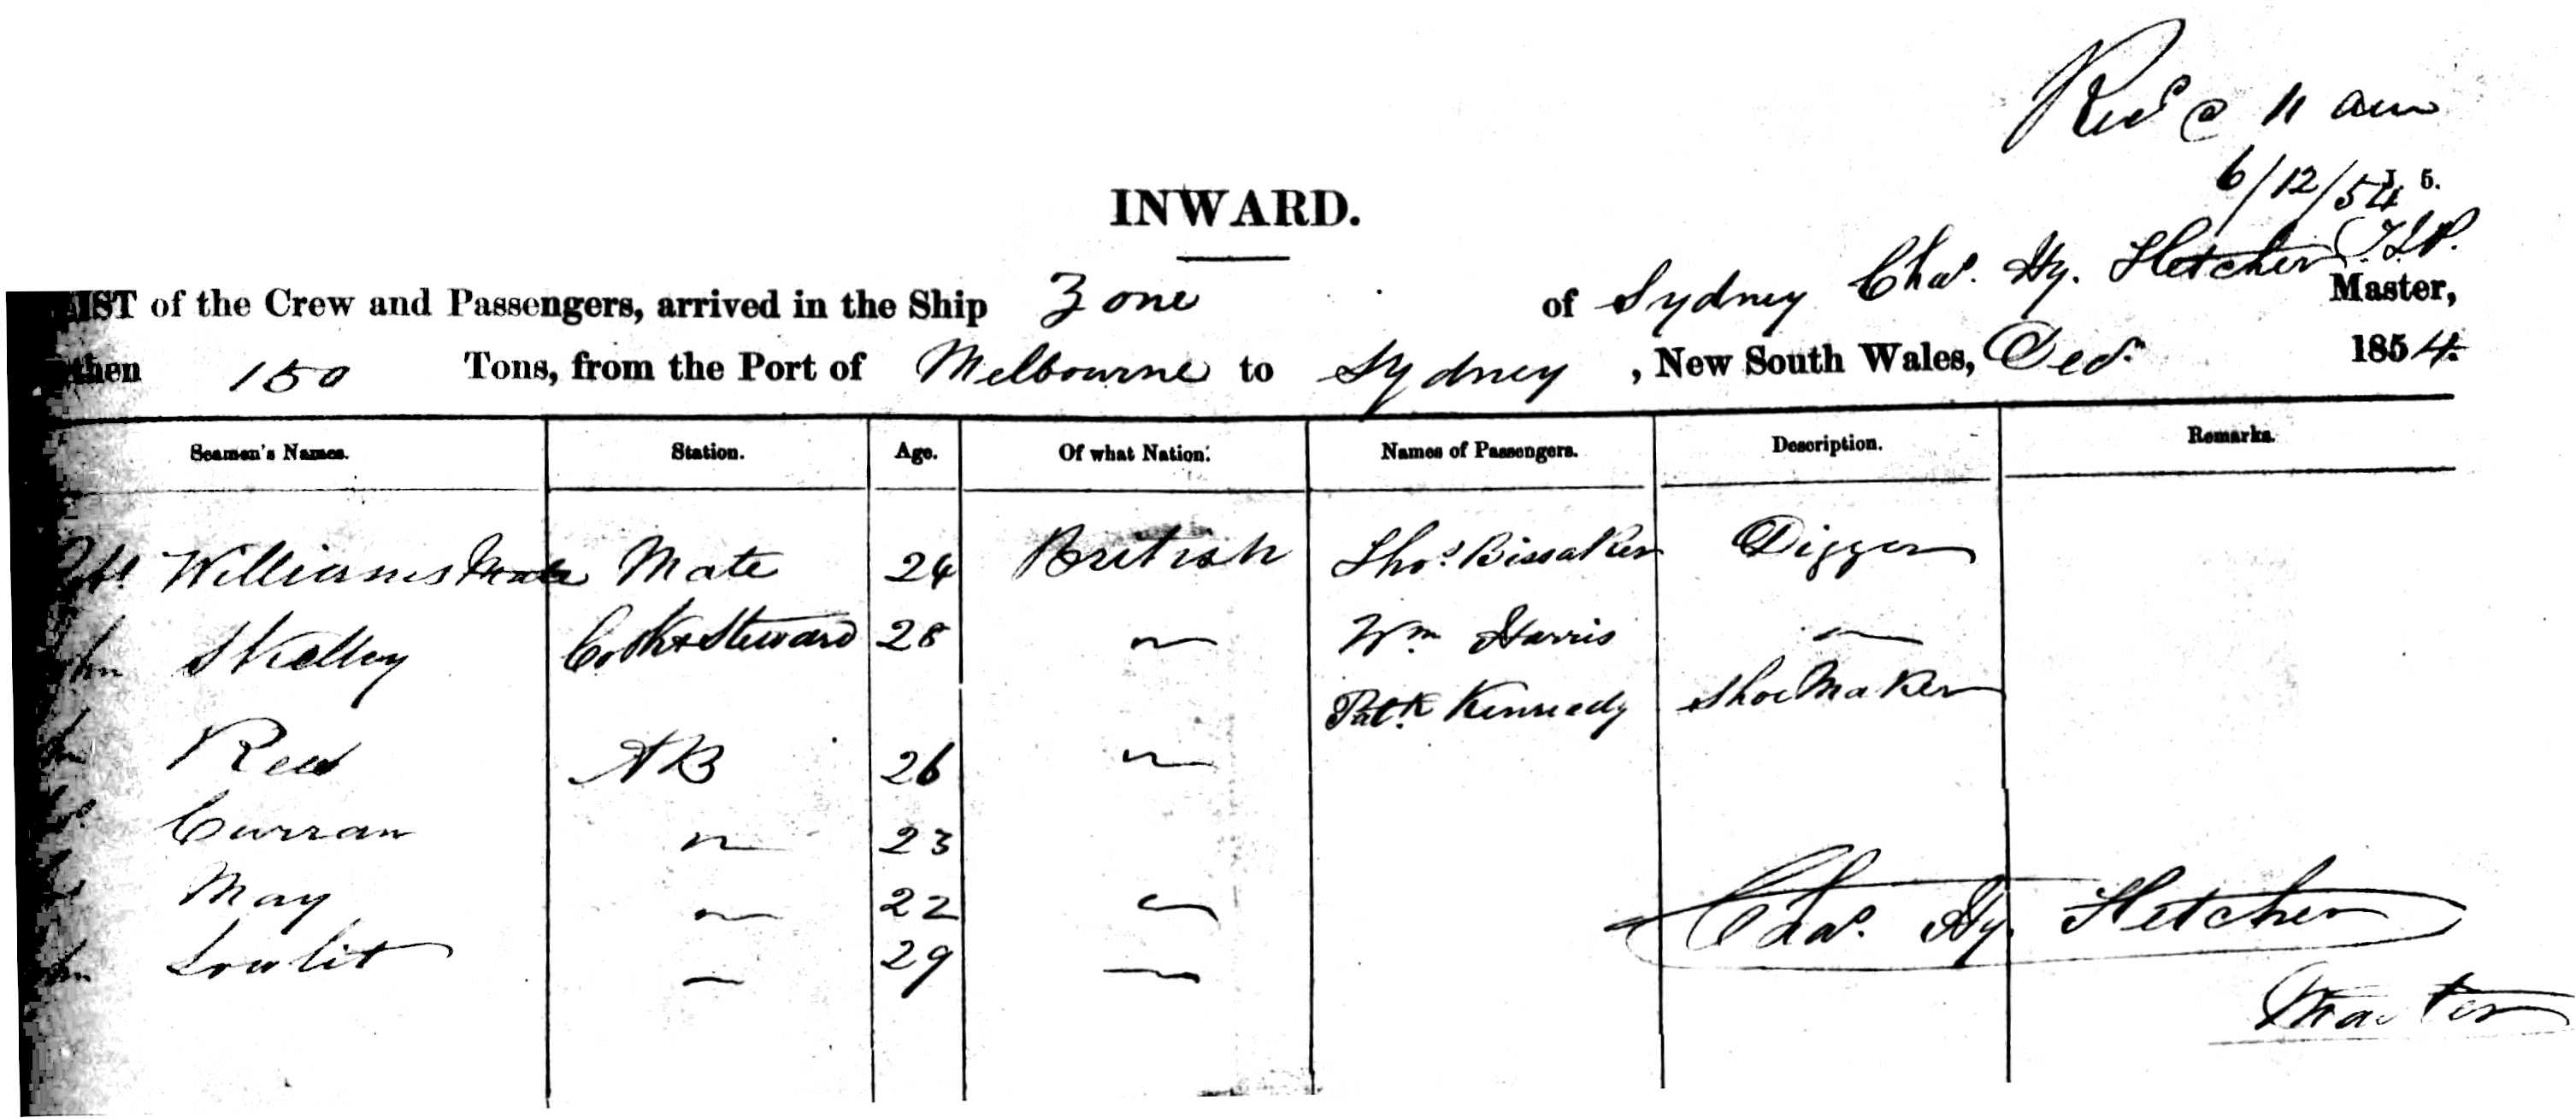 Recd @ 11 am
6/12/54
J 5.
INWARD.
LIST of the Crew and Passengers, arrived in the Ship Zone of Sydney Chas. Hy. Fletcher Master,
then 150 Tons, from the Port of Melbourne to Sydney, New South Wales, Dec. 1854.
Seamen's Names. Station. Age. Of what Nation. Names of Passengers. Description. Remarks.
Williams Mate 24 British Thos. Bissaker Digger
Skelley Cook & Steward 28 〃 Wm Harris 〃
Patk. Kennedy ShoeMaker
Reed AB 26 〃
Curran 〃 23
May 〃 22 〃
Lowlit 〃 29 〃
Chas. Hy. Fletcher
Master